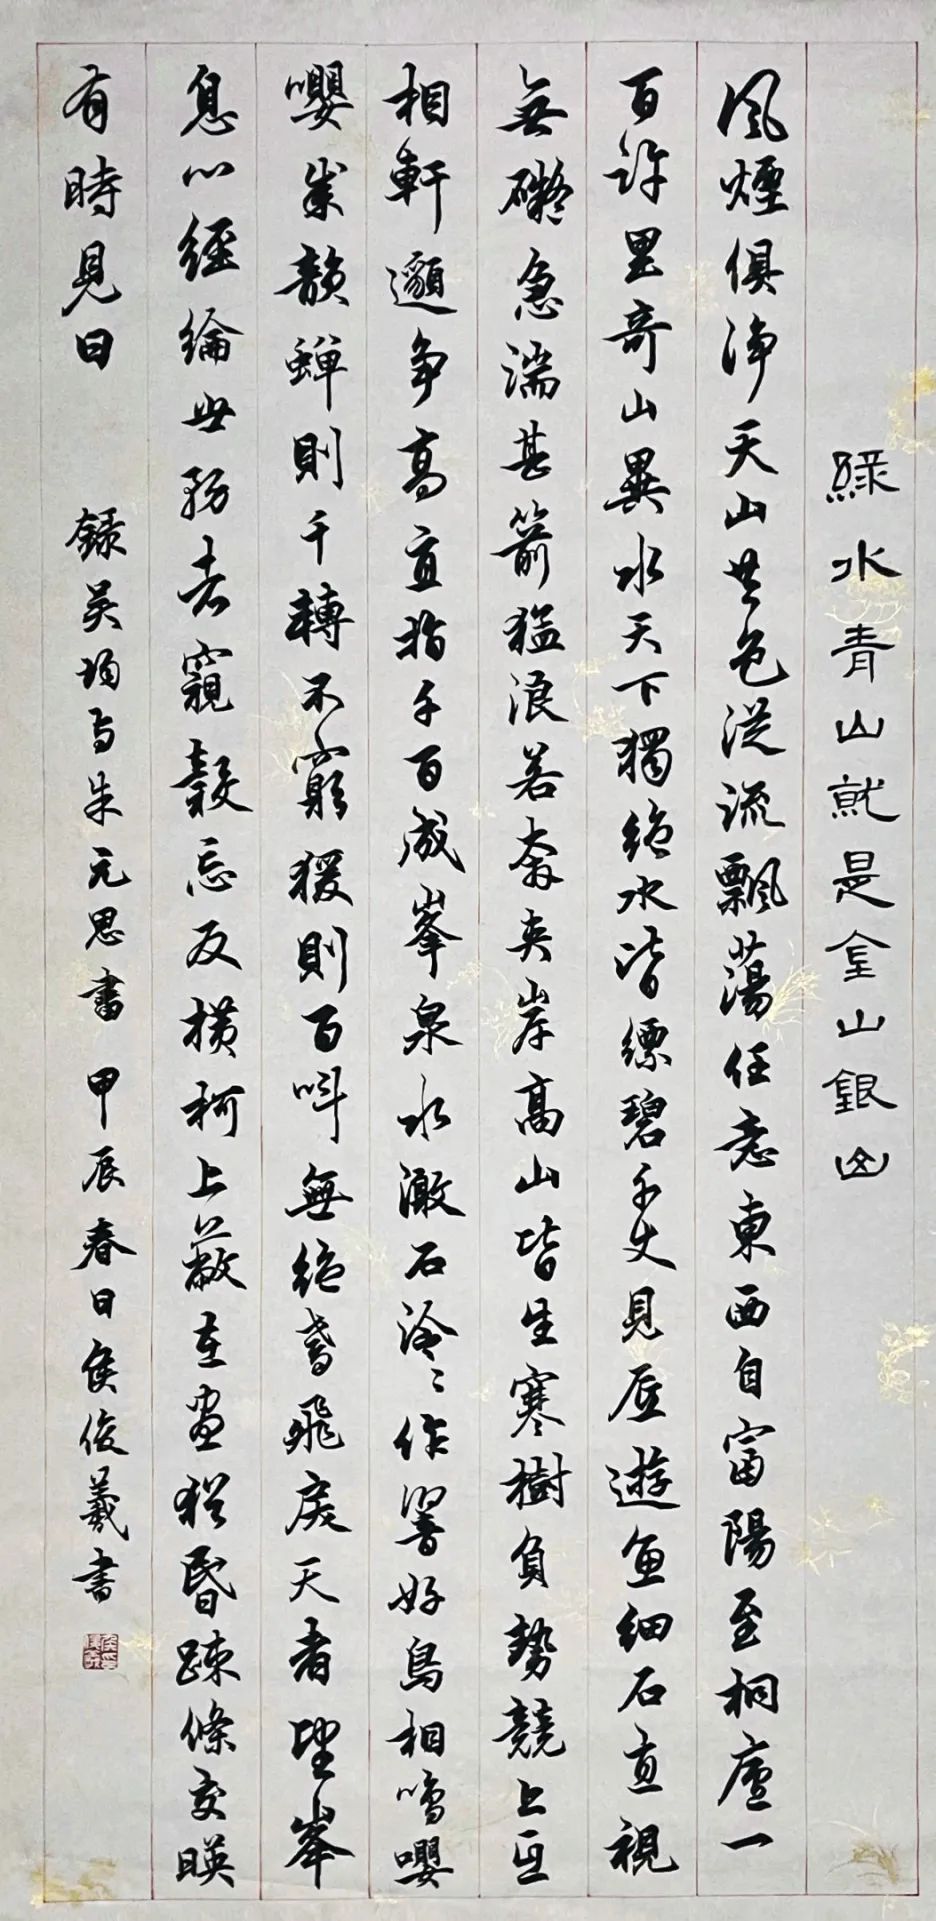 綠水青山就是金山銀山
風煙俱淨天山共色從流飄蕩任意東西自富陽至桐廬一
百許里奇山異水天下獨絶水皆縹碧千丈見底遊魚細石直視
無礙急湍甚箭猛浪若奔夾岸高山皆生寒樹負勢競上互
相軒邈争高直指千百成峯泉水激石泠〻作響好鳥相鳴嚶
嚶成韻蟬則千轉不窮猨則百叫無絶鳶飛戾天者望峯
息心經綸世務者窺穀忘反横柯上蔽在晝猶昏疎條交映
有時見日
録吴均与朱元思書 甲辰春日侯俊羲書